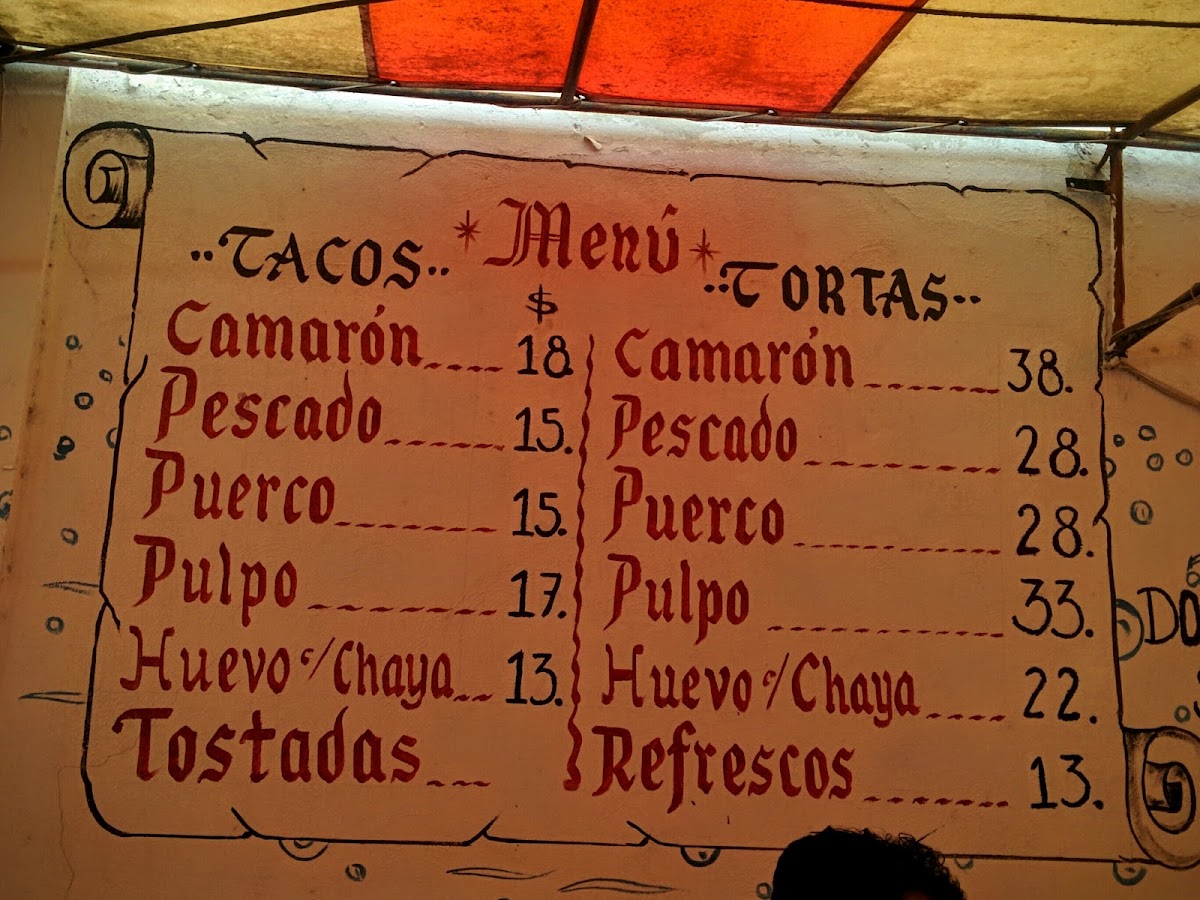 *Menú*
..TACOS..
$
Camarón.... 18
Pescado...... 15.
Puerco........ 15.
Pulpo........ 17.
Huevo c/Chaya.. 13.
Tostadas...
..TORTAS..
Camarón...... 38.
Pescado......... 28.
Puerco......... 28.
Pulpo......... 33.
Huevo c/Chaya.... 22.
Refrescos....... 13.